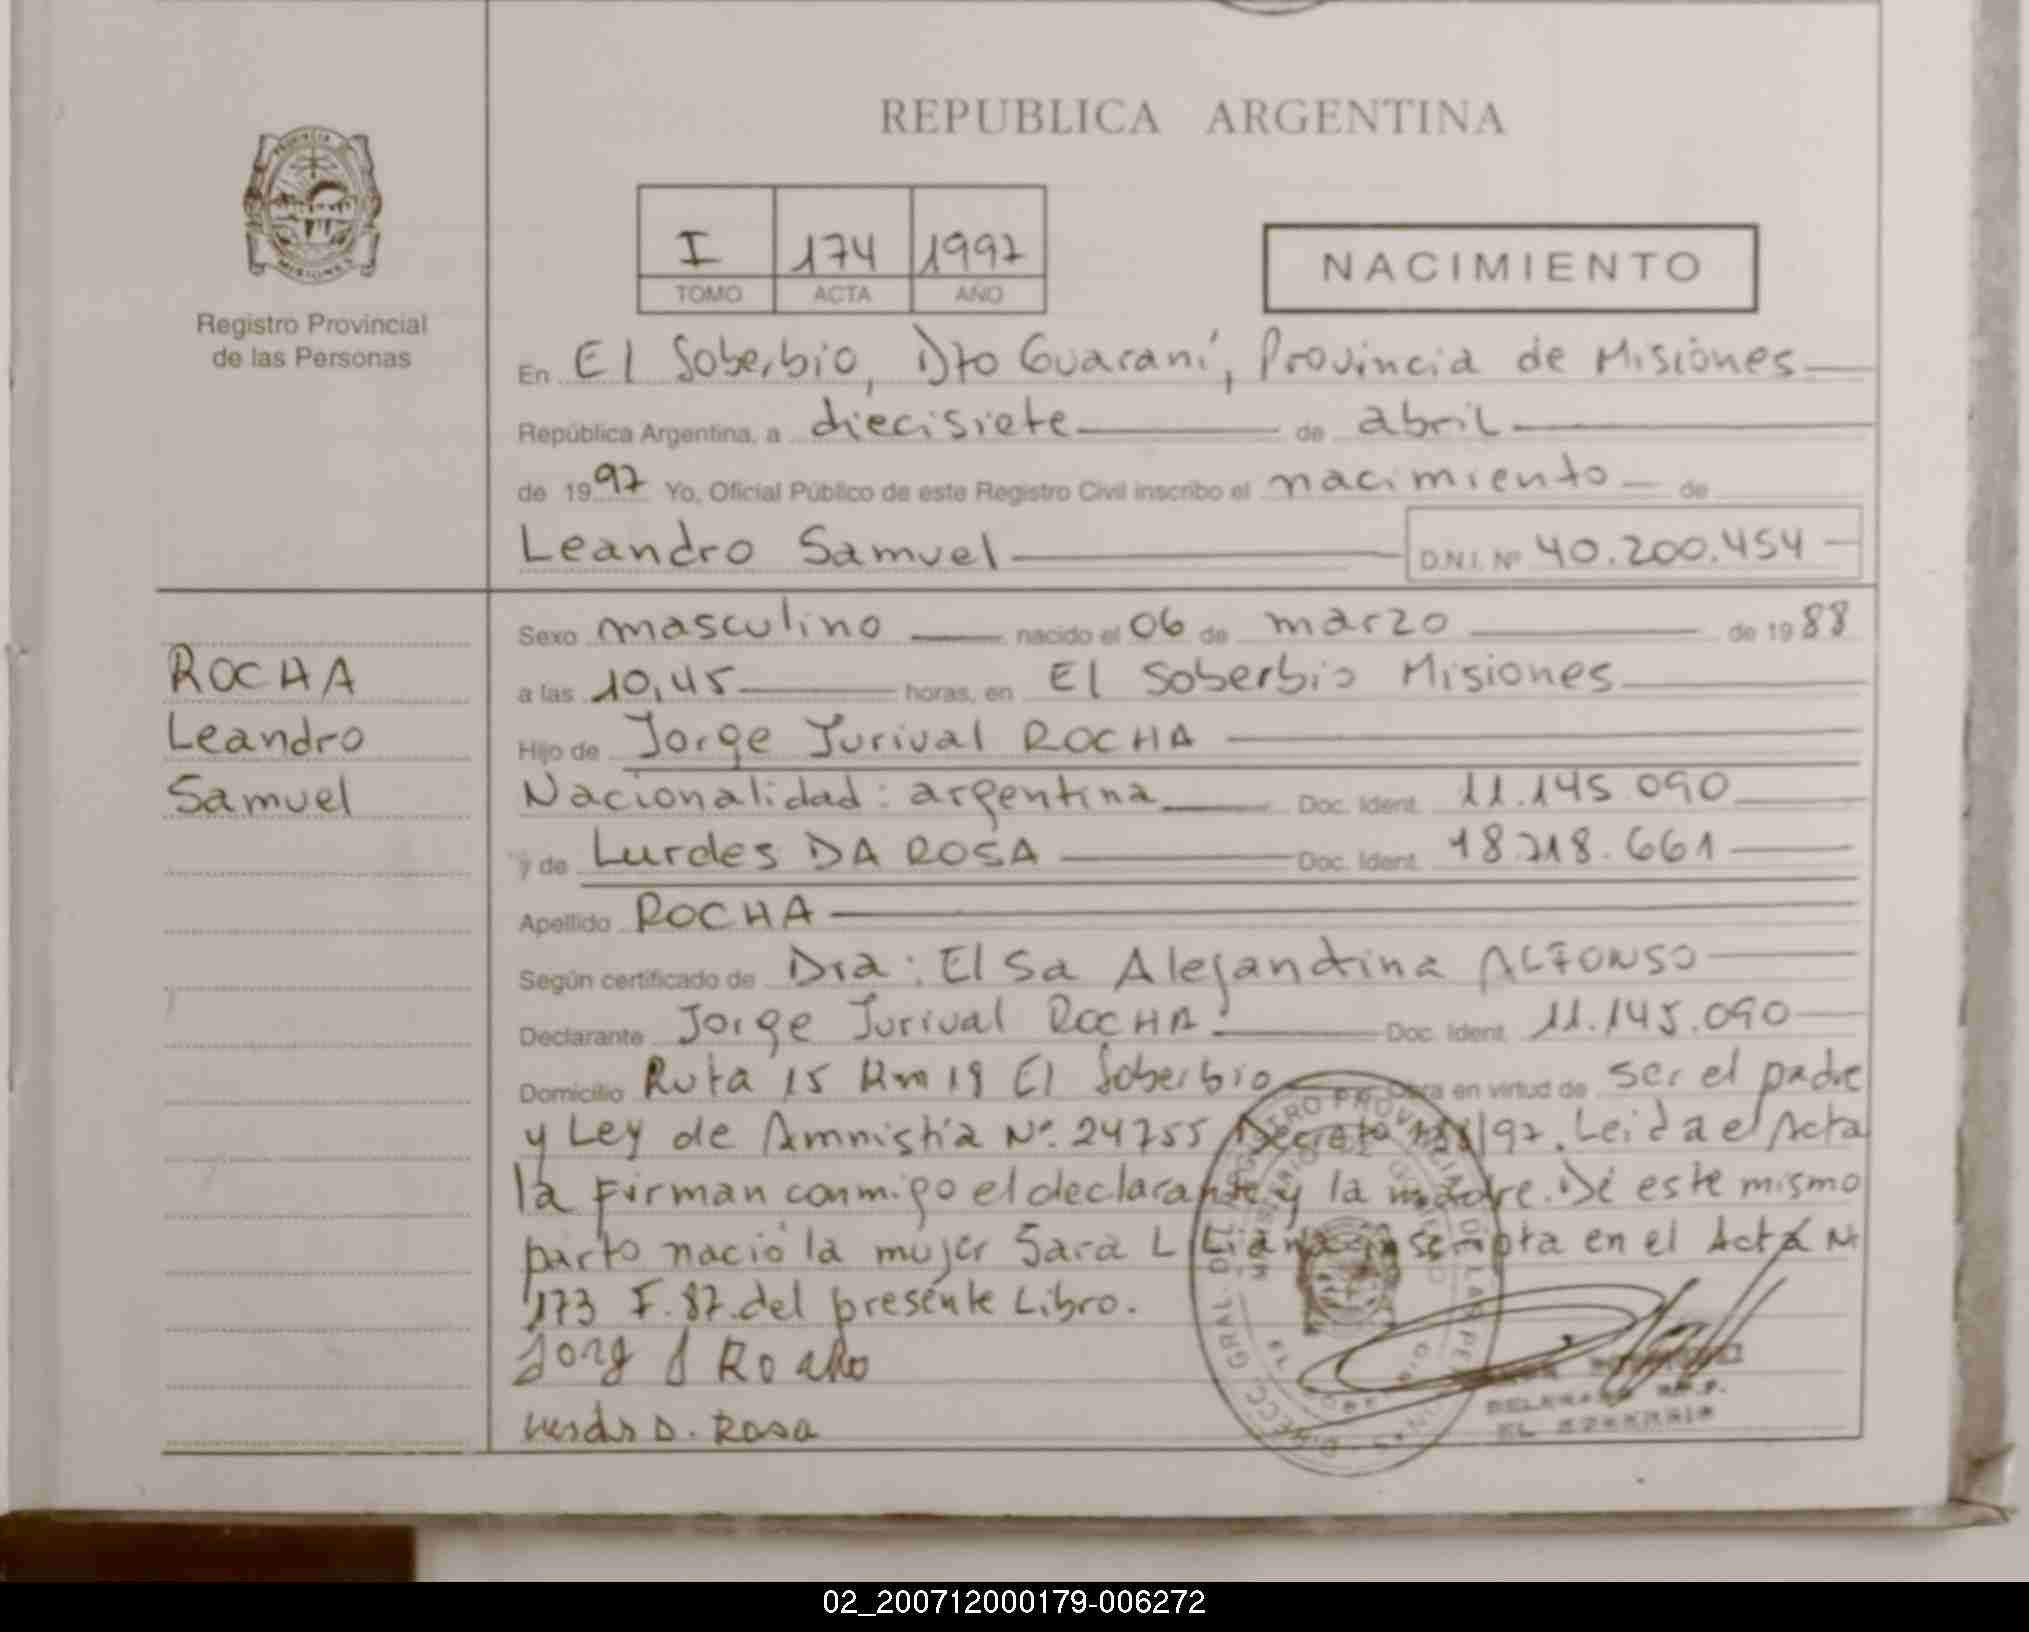 REPUBLICA ARGENTINA
PROVINCIA DE
MISIONES
Registro Provincial
de las Personas
I 174 1997
TOMO ACTA AÑO
NACIMIENTO
En El Soberbio, Dto Guaraní, Provincia de Misiones
República Argentina, a diecisiete de abril
de 1997 Yo, Oficial Público de este Registro Civil inscribo el nacimiento de
Leandro Samuel D.N.I. Nº 40.200.454
Sexo masculino nacido el 06 de marzo de 1988
ROCHA
Leandro
Samuel
a las 10,45 horas, en El Soberbio Misiones
Hijo de Jorge Jurival ROCHA
Nacionalidad: argentina Doc. Ident. 11.145.090
y de Lurdes DA ROSA Doc. Ident. 18.218.661
Apellido ROCHA
Según certificado de Dra: Elsa Alejandrina ALFONSO
Declarante Jorge Jurival ROCHA Doc. Ident. 11.145.090
Domicilio Ruta 15 Km 19 El Soberbio Obra en virtud de ser el padre
y Ley de Amnistía Nº 24755 Decreto /97. Leida el Acta
la firman conmigo el declarante y la madre. De este mismo
parto nació la mujer Sara Liliana inscripta en el Acta Nº
173 F. 87 del presente Libro.
Jorg J Rocha
D. Rosa
EL SOBERBIO
02_200712000179-006272